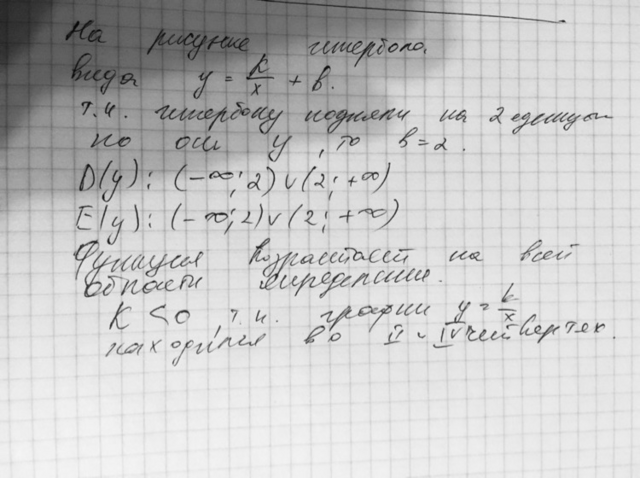 На рисунке гипербола
вида y = k/x + b.
т.к. гиперболу подняли на 2 единицы
по оси y, то b=2.
D(y): (-∞; 2) ∪ (2; +∞)
E(y): (-∞; 2) ∪ (2; +∞)
Функция возрастает на всей
области определения.
K < 0, т.к. график y = k/x
находится во II и IV четвертях.